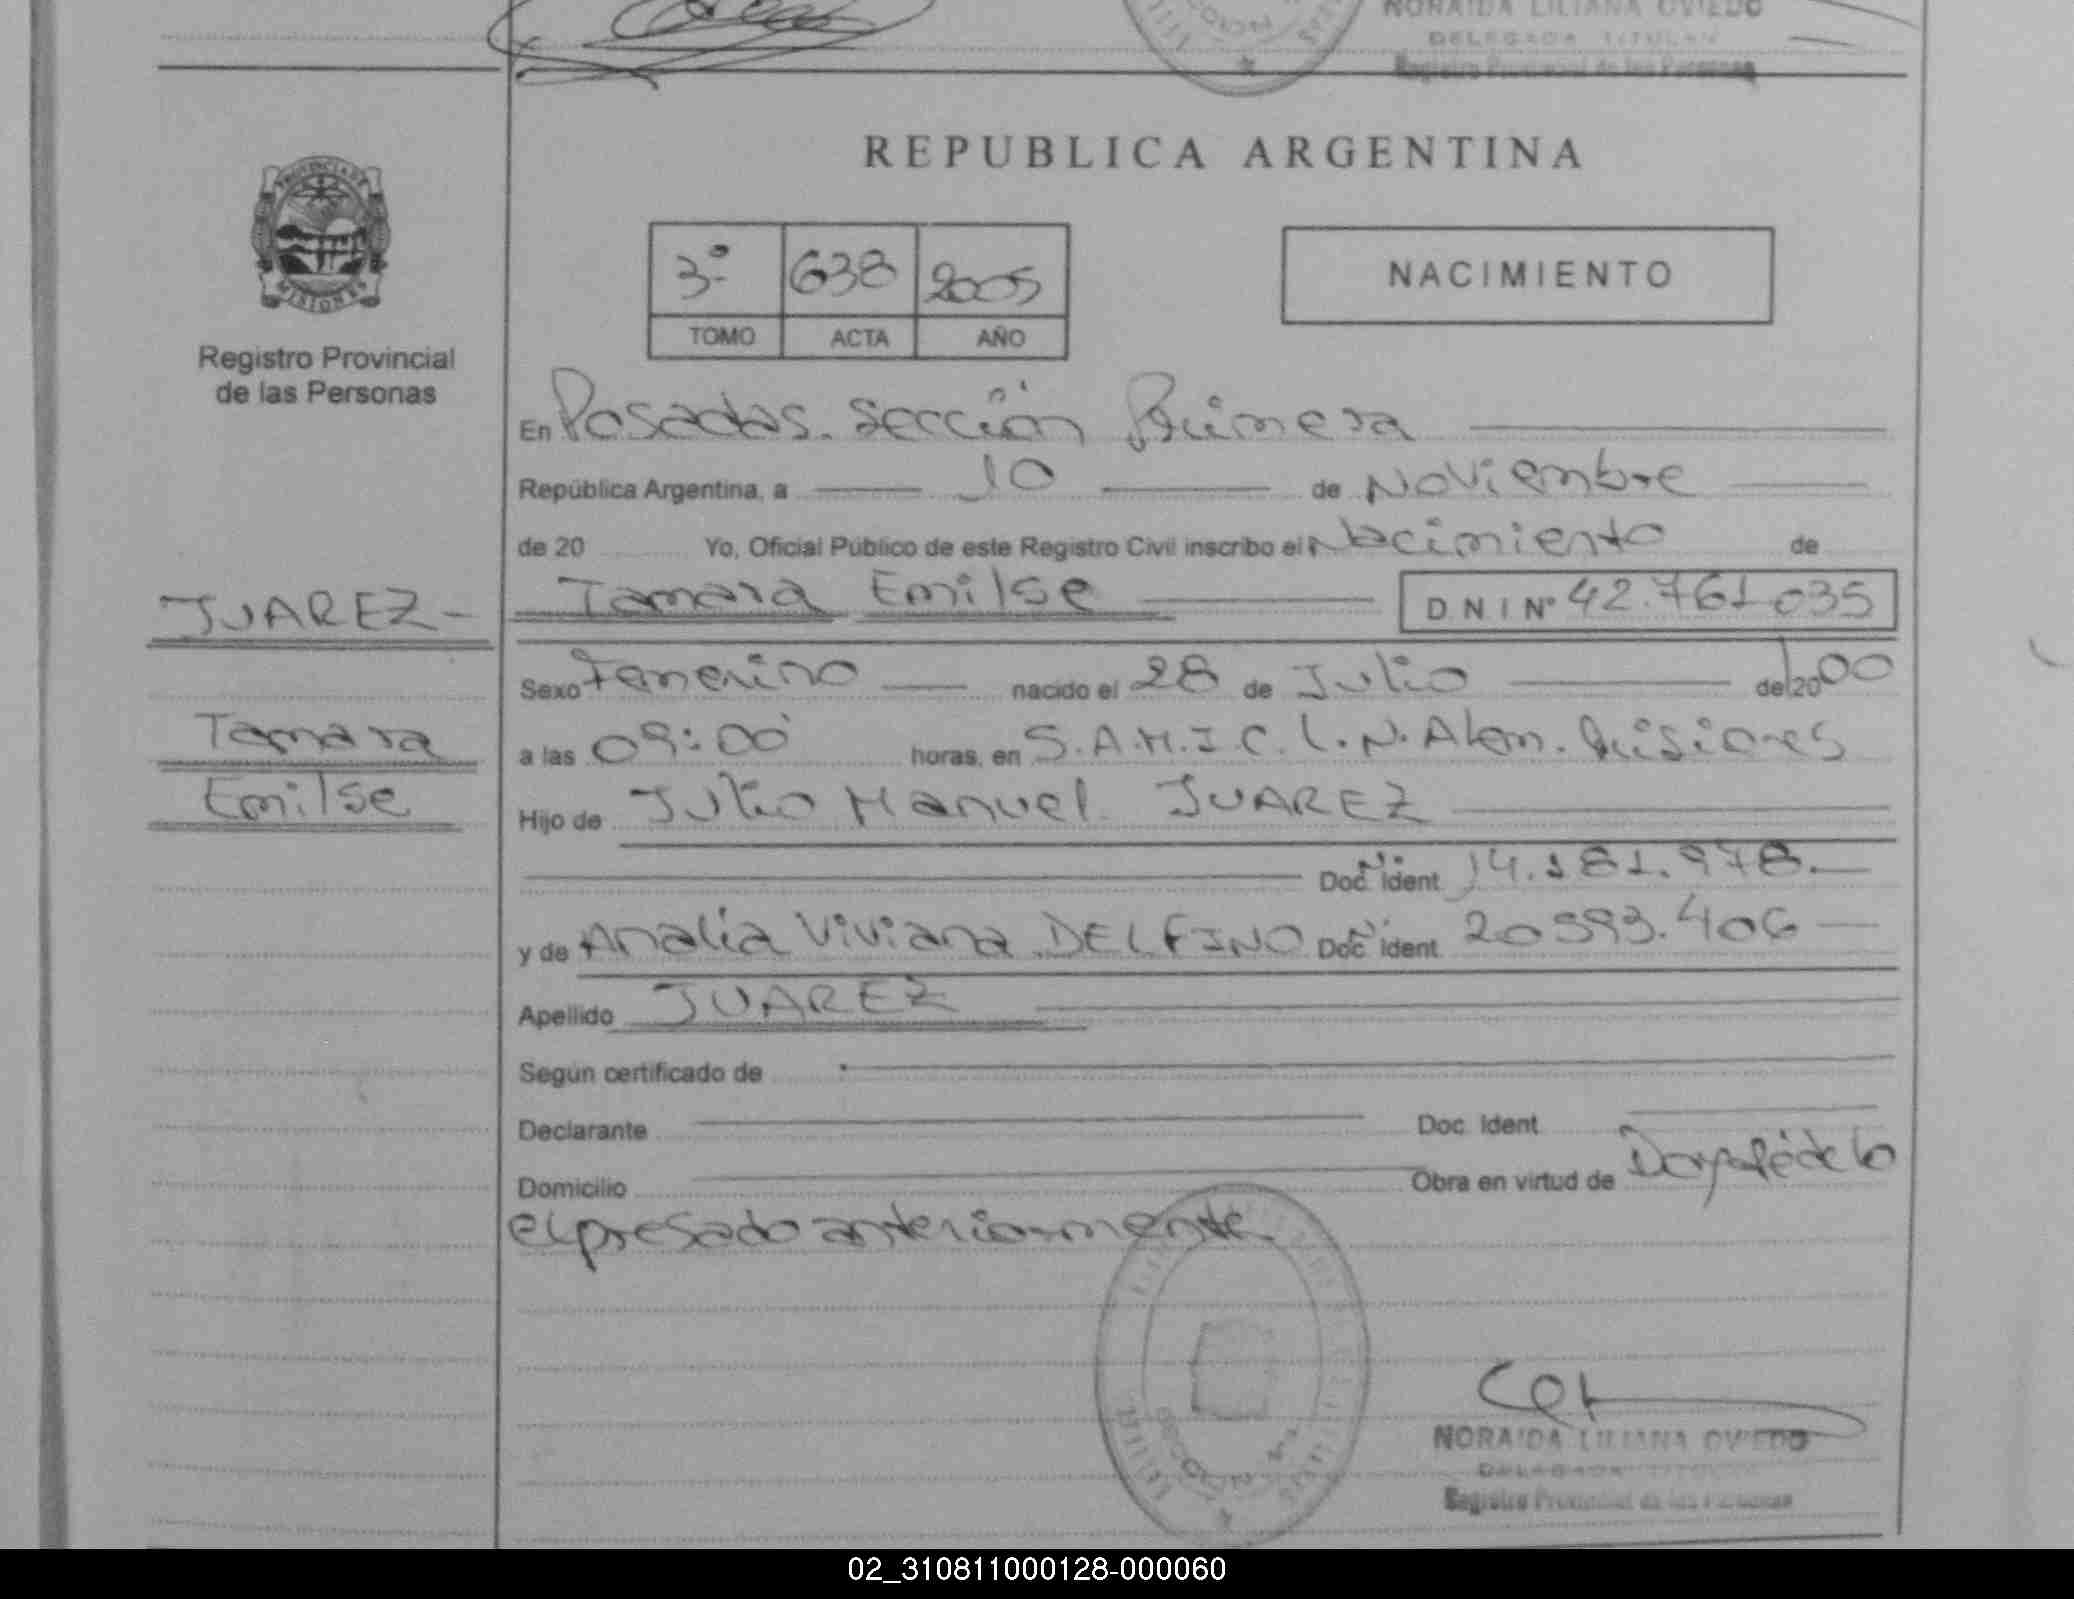 NORAIDA LILIANA OVIEDO
DELEGADA TITULAR
Registro Provincial de las Personas
PROVINCIA DE
MISIONES
Registro Provincial
de las Personas
REPUBLICA ARGENTINA
3º 638 2005
TOMO ACTA AÑO
NACIMIENTO
En Posadas. Sección Primera
República Argentina, a 10 de Noviembre
de 20 Yo, Oficial Público de este Registro Civil inscribo el Nacimiento de
JUAREZ-
Tamara Emilse DNI Nº 42.761.035
Sexo Femenino nacido el 28 de Julio de 2000
Tamara
a las 09:00 horas, en S.A.M.I.C. L.N. Alem. Misiones
Emilse
Hijo de Julio Manuel JUAREZ
Doc. Ident 14.181.978.
y de Analía Viviana DELFINO Doc. Ident. 20593.406
Apellido JUAREZ
Según certificado de
Declarante Doc. Ident.
Domicilio Obra en virtud de Doy fé de lo
expresado anteriormente.
NORAIDA LILIANA OVIEDO
DELEGADA TITULAR
Registro Provincial de las Personas
02_310811000128-000060